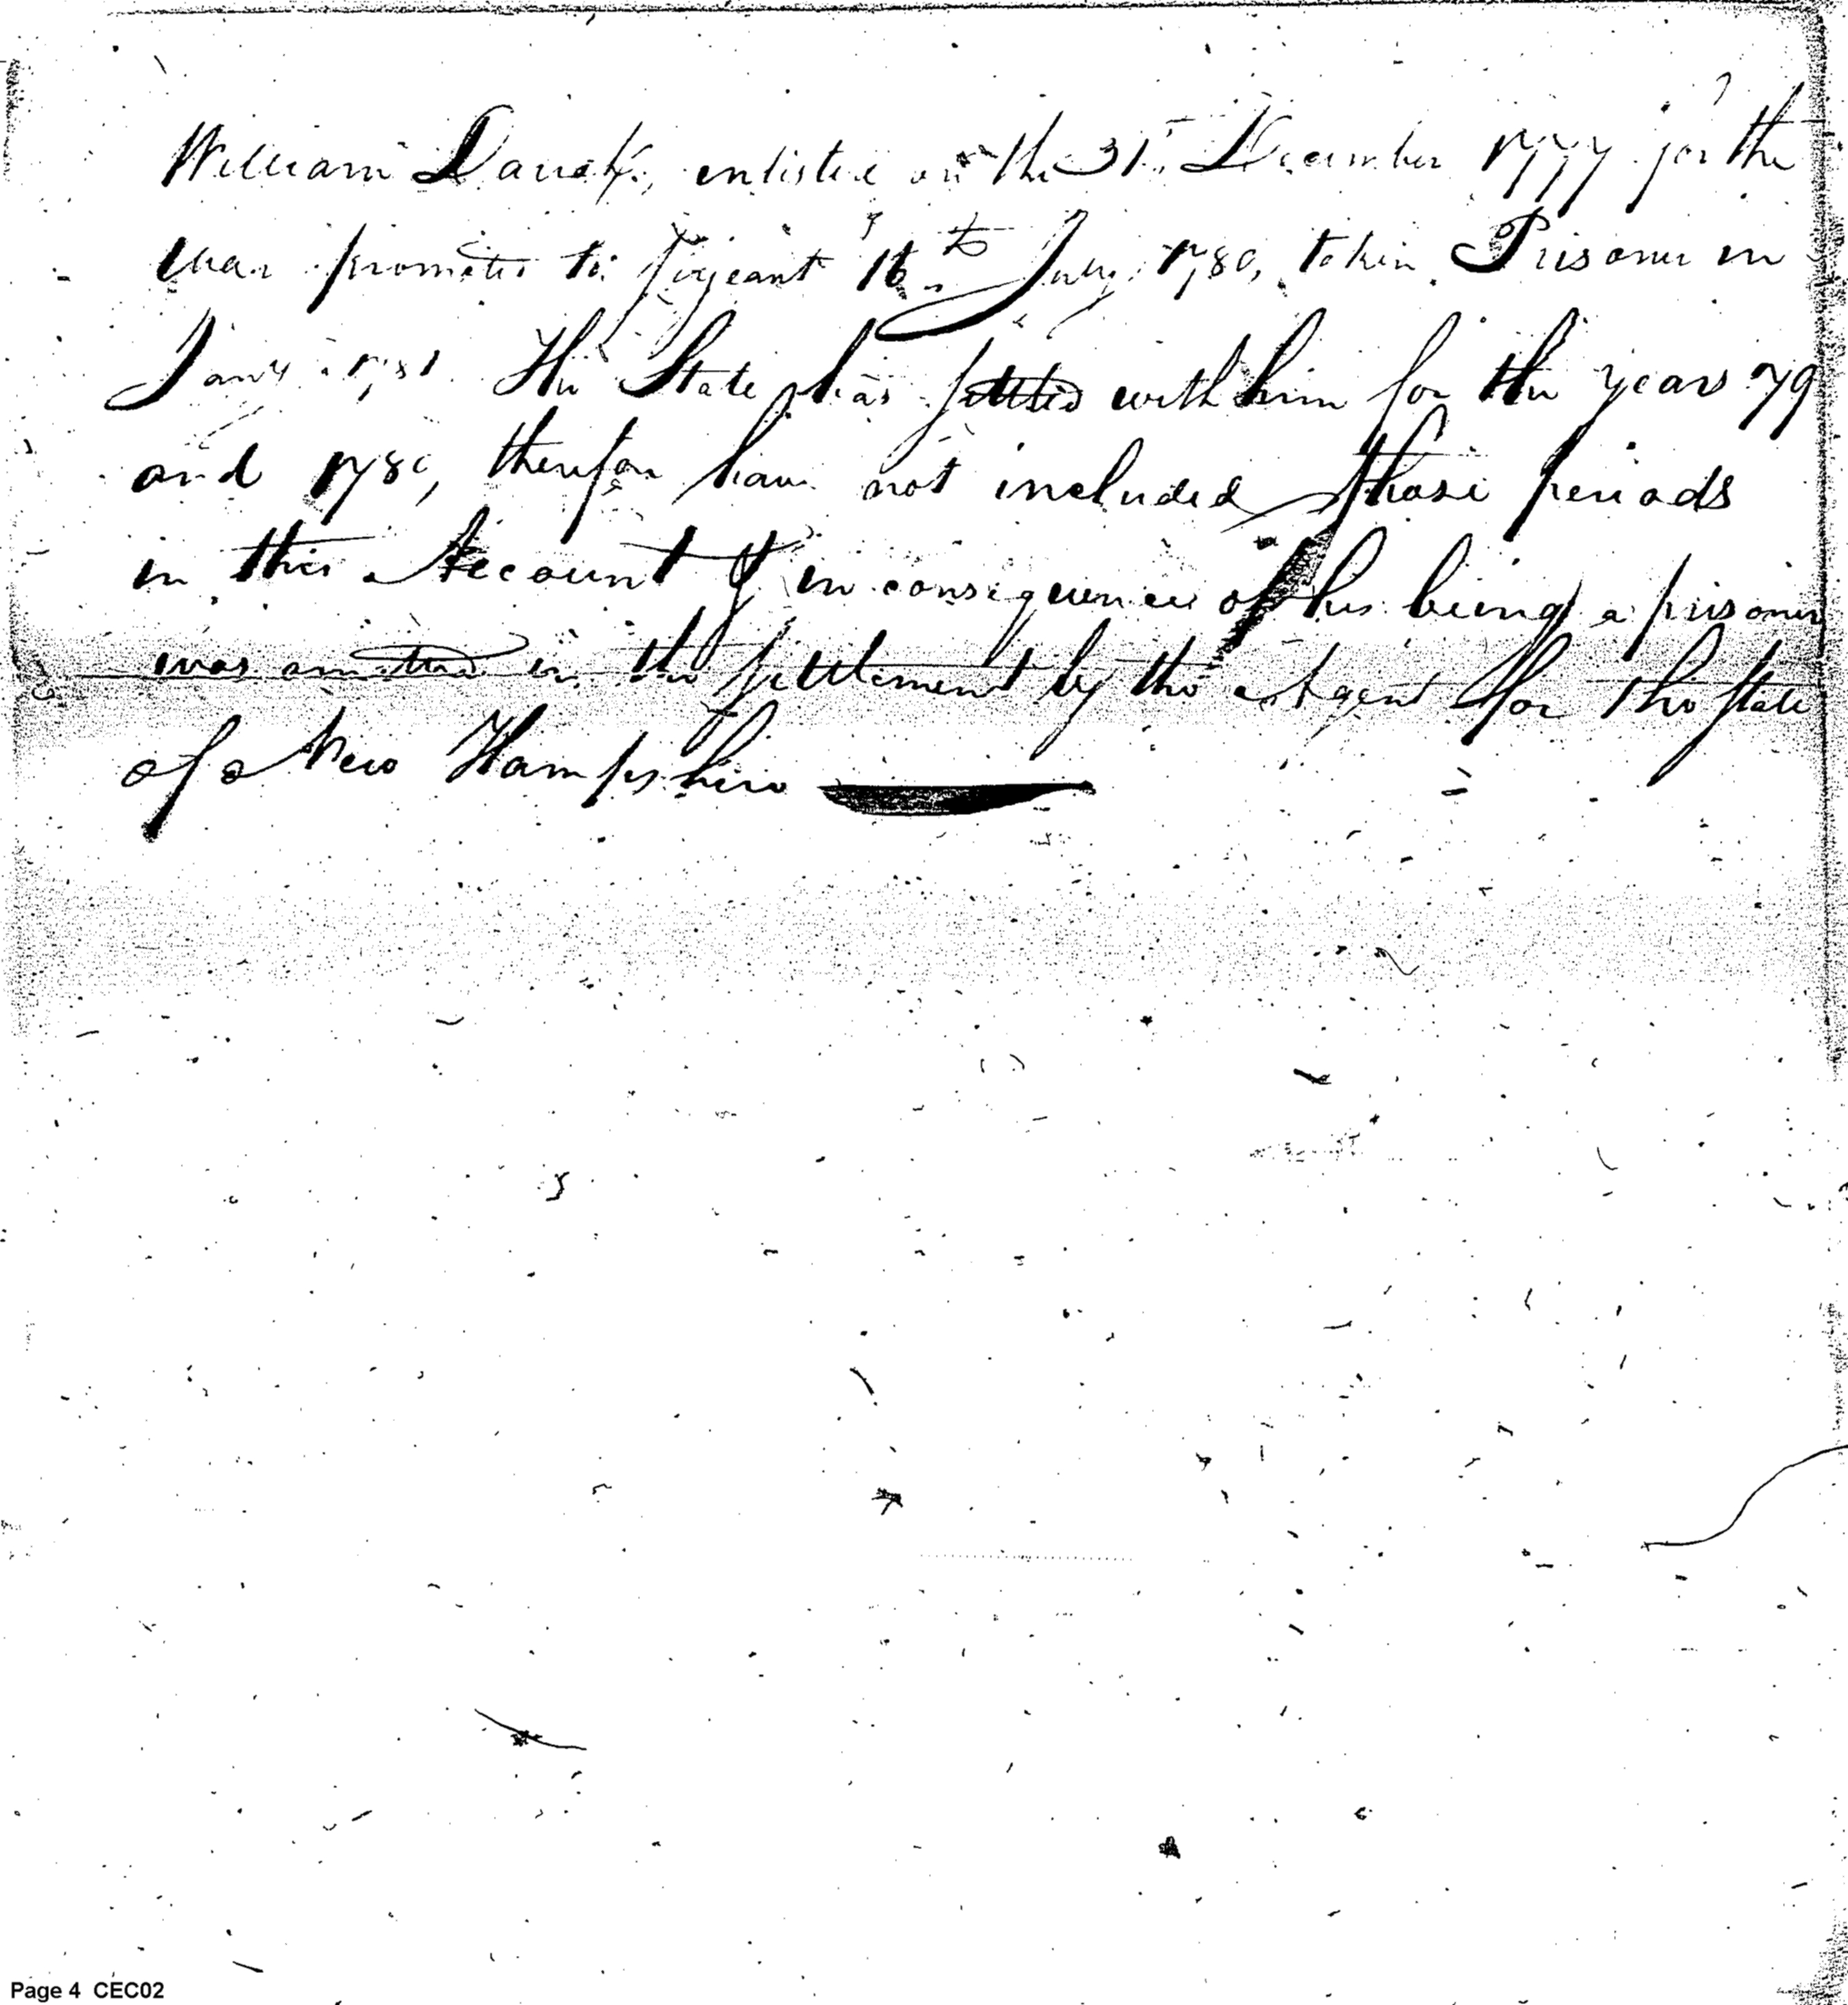 William enlisted on the 31st December 1777 for the
war promoted to Sergeant 16th July 1780, taken Prisoner in
Jany 1781 The State has settled with him for the years 79
and 1780, therefore have not included those periods
in this Account & in consequence of his being a prisoner
was omitted in the settlement by the Agent for the State
of New Hampshire
Page 4 CEC02